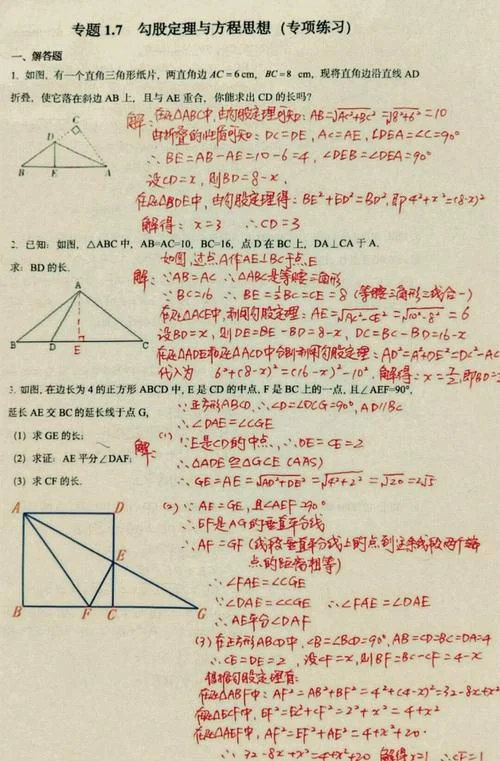 专题 1.7 勾股定理与方程思想（专项练习）
一、解答题
1. 如图，有一个直角三角形纸片，两直角边 AC = 6 cm，BC = 8 cm，现将直角边沿直线 AD
折叠，使它落在斜边 AB 上，且与 AE 重合，你能求出 CD 的长吗？
解：在Rt△ABC中，由勾股定理可知：AB=√AC²+BC²=√8²+6²=10
由折叠的性质可知：DC=DE，AC=AE，∠DEA=∠C=90°
∴BE=AB-AE=10-6=4，∠DEB=∠DEA=90°
设CD=x，则BD=8-x.
在Rt△BDE中，由勾股定理得：BE²+ED²=BD²，即4²+x²=(8-x)²
解得：x=3 ∴CD=3
C
D
B E A
2. 已知：如图，△ABC 中，AB=AC=10，BC=16，点 D 在 BC 上，DA⊥CA 于 A.
求：BD 的长.
如图，过点A作AE⊥BC于点E
解：∵AB=AC ∴△ABC是等腰三角形
∵BC=16 ∴BE=½BC=CE=8（等腰三角形三线合一）
在Rt△ACE中，利用勾股定理：AE=√AC²-CE²=√10²-8²=6
设BD=x，则DE=BE-BD=8-x，DC=BC-BD=16-x
在Rt△ADE和Rt△ACD中分别利用勾股定理：AD²=AE²+DE²=DC²-AC
代入为 6²+(8-x)²=(16-x)²-10². 解得：x=7/2，即BD=
A
B D E C
3. 如图，在边长为 4 的正方形 ABCD 中，E 是 CD 的中点，F 是 BC 上的一点，且∠AEF=90°，
延长 AE 交 BC 的延长线于点 G，
(1) 求 GE 的长；
(2) 求证：AE 平分∠DAF；
(3) 求 CF 的长.
∵正方形ABCD，∴∠D=∠DCG=90°，AD∥BC
∴∠DAE=∠CGE
解：(1) ∵E是CD的中点，∴DE=CE=2
∴△ADE≌△GCE (AAS)
∴GE=AE=√AD²+DE²=√4²+2²=√20=2√5
(2) ∵AE=GE，且∠AEF=90°
∴EF是AG的垂直平分线
∴AF=GF（线段垂直平分线上的点到这条线段两个端
点的距离相等）
∴∠FAE=∠CGE
∵∠DAE=∠CGE ∴∠FAE=∠DAE
∴AE平分∠DAF
A D
E
B F C G
(3) 在正方形ABCD中，∠B=∠BCD=90°，AB=CD=BC=DA=4
∴CE=DE=2，设CF=x，则BF=BC-CF=4-x
根据勾股定理有：
在Rt△ABF中：AF²=AB²+BF²=4²+(4-x)²=32-8x+x²
在Rt△ECF中，EF²=EC²+CF²=2²+x²=4+x²
在Rt△AEF中，AF²=EF²+AE²=4+x²+20.
∴32-8x+x²=4+x²+20 解得x=1 ∴CF=1